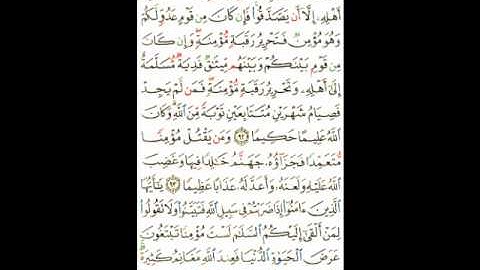 أَهْلِهِۦٓ إِلَّآ أَن يَصَّدَّقُوا۟ ۚ فَإِن كَانَ مِن قَوْمٍ عَدُوٍّ لَّكُمْ
وَهُوَ مُؤْمِنٌ فَتَحْرِيرُ رَقَبَةٍ مُّؤْمِنَةٍ ۖ وَإِن كَانَ
مِن قَوْمٍۭ بَيْنَكُمْ وَبَيْنَهُم مِّيثَـٰقٌ فَدِيَةٌ مُّسَلَّمَةٌ
إِلَىٰٓ أَهْلِهِۦ وَتَحْرِيرُ رَقَبَةٍ مُّؤْمِنَةٍ ۖ فَمَن لَّمْ يَجِدْ
فَصِيَامُ شَهْرَيْنِ مُتَتَابِعَيْنِ تَوْبَةً مِّنَ ٱللَّهِ ۗ وَكَانَ
ٱللَّهُ عَلِيمًا حَكِيمًا ٩٢ وَمَن يَقْتُلْ مُؤْمِنًا
مُّتَعَمِّدًا فَجَزَآؤُهُۥ جَهَنَّمُ خَـٰلِدًا فِيهَا وَغَضِبَ
ٱللَّهُ عَلَيْهِ وَلَعَنَهُۥ وَأَعَدَّ لَهُۥ عَذَابًا عَظِيمًا ٩٣ يَـٰٓأَيُّهَا
ٱلَّذِينَ ءَامَنُوٓا۟ إِذَا ضَرَبْتُمْ فِى سَبِيلِ ٱللَّهِ فَتَبَيَّنُوا۟ وَلَا تَقُولُوا۟
لِمَنْ أَلْقَىٰٓ إِلَيْكُمُ ٱلسَّلَـٰمَ لَسْتَ مُؤْمِنًا تَبْتَغُونَ
عَرَضَ ٱلْحَيَوٰةِ ٱلدُّنْيَا فَعِندَ ٱللَّهِ مَغَانِمُ كَثِيرَةٌ ۚ